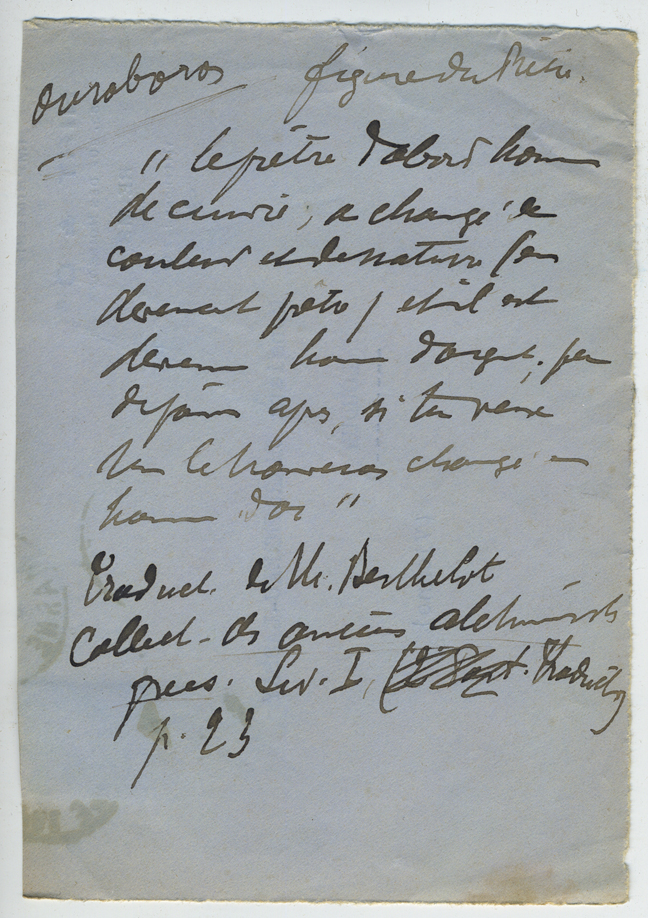 ouroboros figure du
" le prêtre d'abord homme
de cuivre, a changé de
couleur et de nature (en
devenant prêtre) et il est
devenu homme d'argent, peu
de jours après, si tu veux
tu le trouveras changé en
homme d'or "
Traduct. de M. Berthelot
Collect. des anciens alchimistes
grecs. Liv. I, Traduction
p. 23